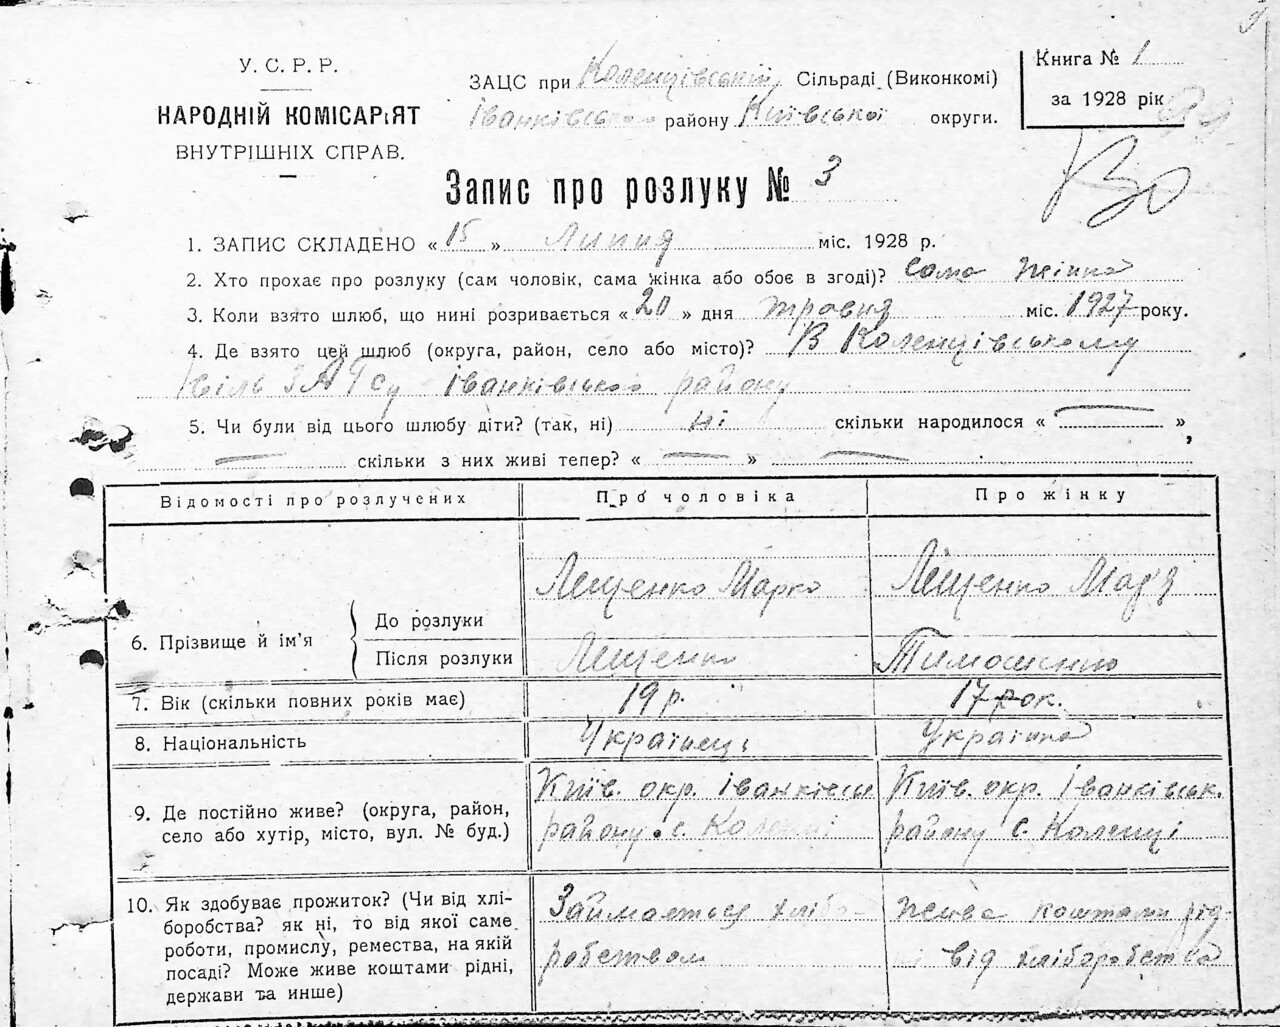 У. С. Р. Р.
НАРОДНІЙ КОМІСАРІЯТ
ВНУТРІШНІХ СПРАВ.
ЗАЦС при Коленцівській Сільраді (Виконкомі)
Іванківського району Київської округи.
Книга № 1
за 1928 рік
Запис про розлуку № 3
1. ЗАПИС СКЛАДЕНО « 15 » Липня міс. 1928 р.
2. Хто прохає про розлуку (сам чоловік, сама жінка або обоє в згоді)? Сама жінка
3. Коли взято шлюб, що нині розривається « 20 » дня травня міс. 1927 року.
4. Де взято цей шлюб (округа, район, село або місто)? В Коленцівському
віль ЗАГСу іванківського району
5. Чи були від цього шлюбу діти? (так, ні) ні скільки народилося « — »,
— скільки з них живі тепер? « — » —
Відомості про розлучених Про чоловіка Про жінку
6. Прізвище й ім'я
До розлуки Лещенко Марко Лещенко Мар'я
Після розлуки Лещенко Тимошенко
7. Вік (скільки повних років має) 19 р. 17 рок.
8. Національність Українець Українка
9. Де постійно живе? (округа, район,
село або хутір, місто, вул. № буд.)
Київ. окр. Іванківськ
району с. Коленці
Київ. окр. Іванківськ.
району с. Коленці
10. Як здобуває прожиток? (Чи від хлі-
боробства? як ні, то від якої саме
роботи, промислу, ремества, на якій
посаді? Може живе коштами рідні,
держави та инше)
Займається хлібо-
робством
Жива коштами рід-
ні від хліборобства